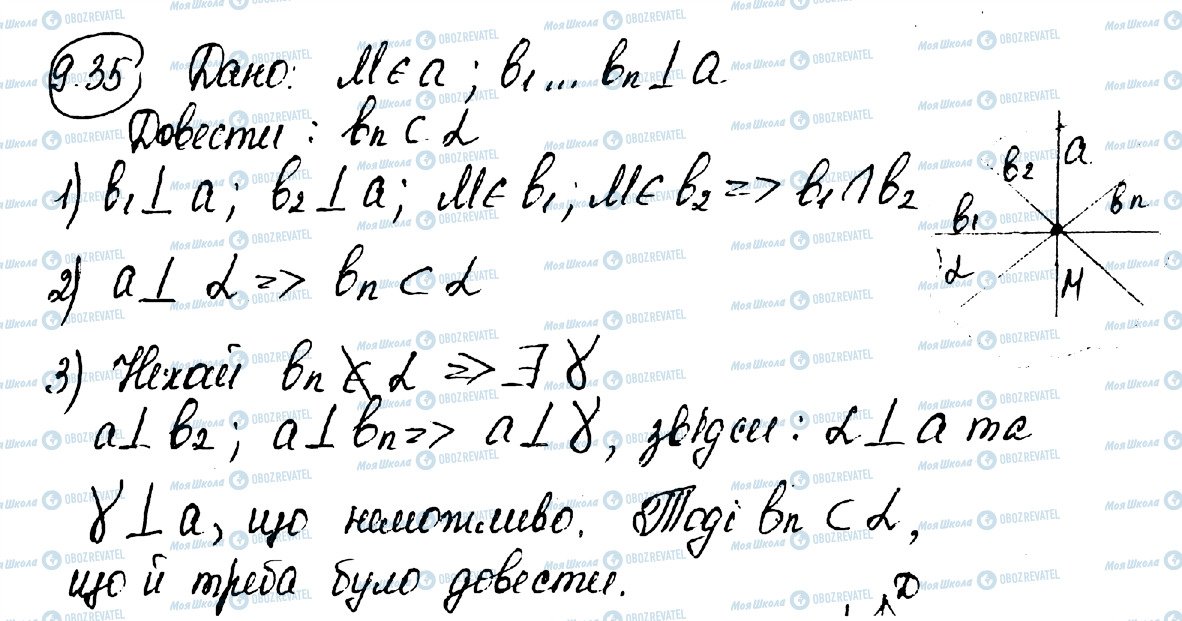 9.35 Дано: M ∈ a; b₁ ... bₙ ⊥ a.
Довести: bₙ ⊂ α
1) b₁ ⊥ a; b₂ ⊥ a; M ∈ b₁; M ∈ b₂ => b₁ ∩ b₂
2) a ⊥ α => bₙ ⊂ α
3) Нехай bₙ ⊄ α => ∃ γ
a ⊥ b₂; a ⊥ bₙ => a ⊥ γ, звідси: α ⊥ a та
γ ⊥ a, що неможливо. Тоді bₙ ⊂ α,
що й треба було довести.
a
b₂
bₙ
b₁
α
M